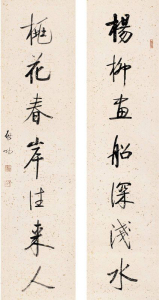 楊柳畫船深淺水
桃花春岸往来人
啟功